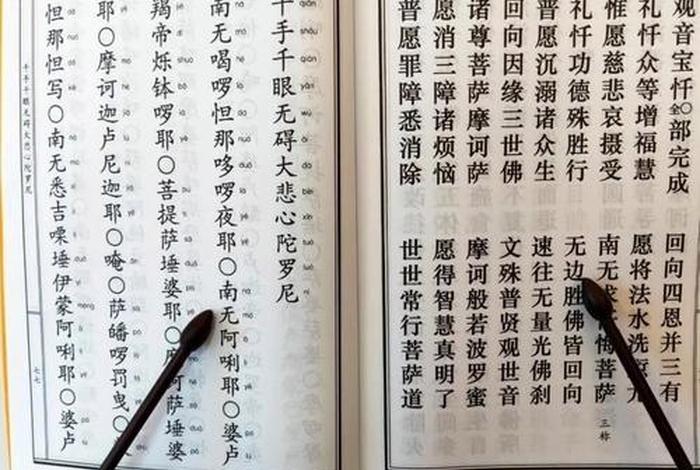 观音宝忏〇全部完成 回向四恩并三有
礼忏众等增福慧 愿将法水洗尤
惟愿慈悲哀摄受 南无求忏悔菩萨 三称
礼忏功德殊胜行 无边胜佛皆回向
普愿沉溺诸众生 速往无量光佛刹
回向因缘三世佛 文殊普贤观世音
诸尊菩萨摩诃萨 摩诃般若波罗蜜
愿消三障诸烦恼 愿得智慧真明了
普愿罪障悉消除 世世常行菩萨道
千手千眼无碍大悲心陀罗尼
南无喝啰怛那哆啰夜耶〇南无阿唎耶〇婆卢
羯帝烁钵啰耶〇菩提萨埵婆耶〇摩诃萨埵婆
耶〇摩诃迦卢尼迦耶〇唵〇萨皤啰罚曳〇
怛那怛写〇南无悉吉嘌埵伊蒙阿唎耶〇婆卢
千手千眼无碍大悲心陀罗尼
七七